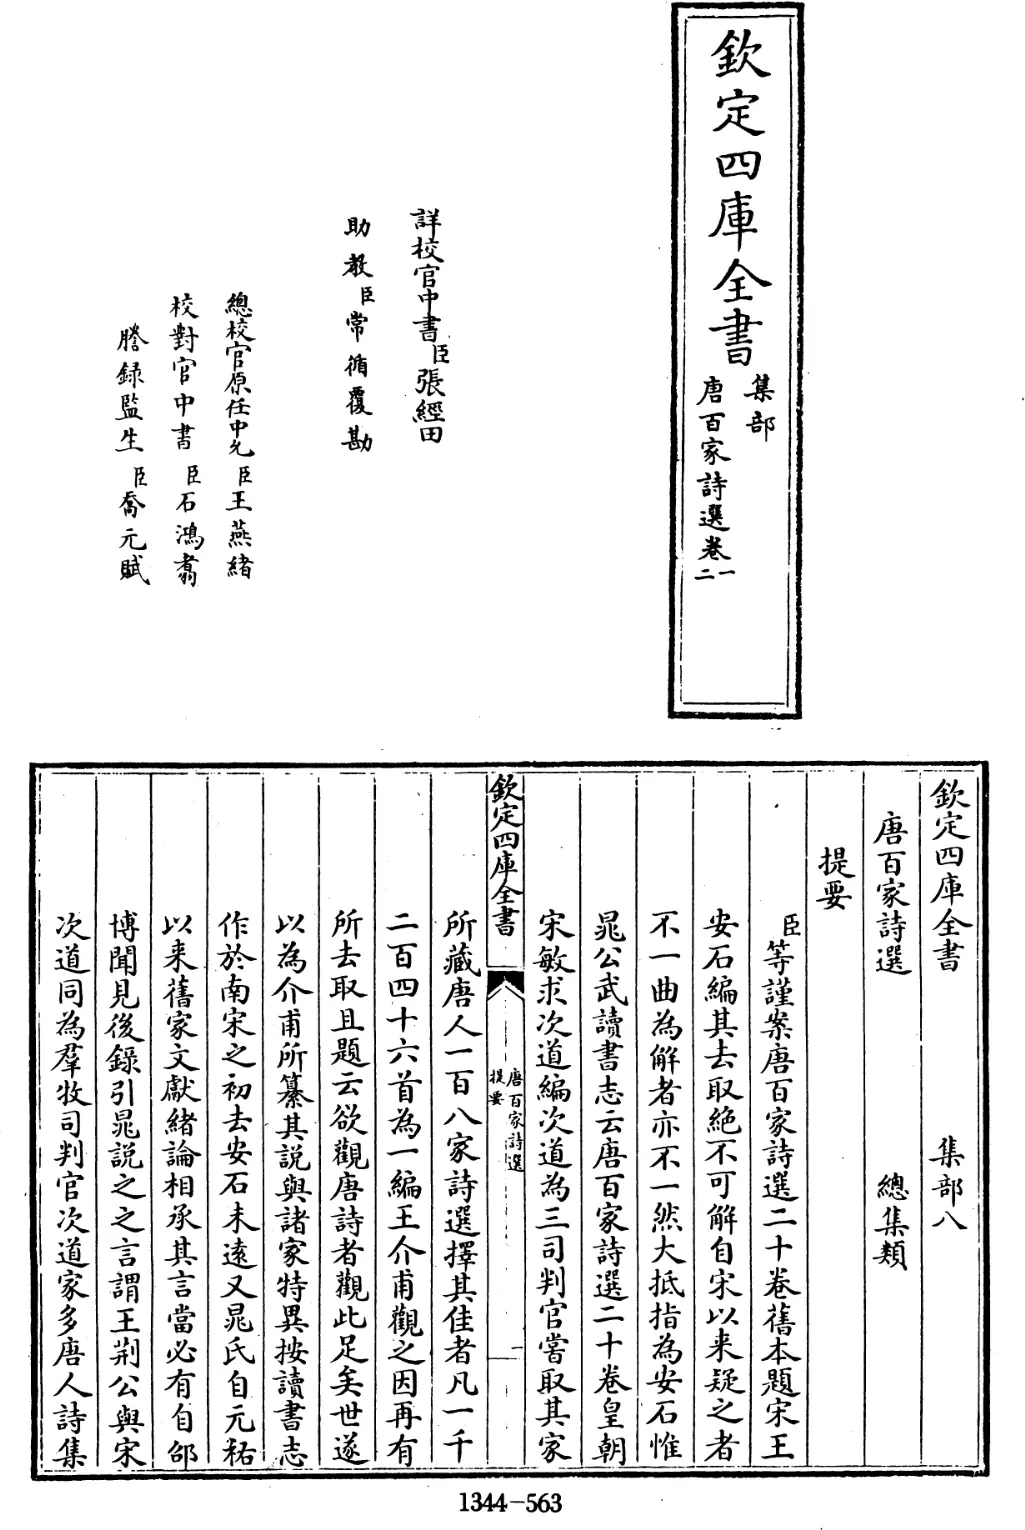 欽定四庫全書
集部
唐百家詩選卷一
二
詳校官中書臣張經田
助教臣常循覆勘
總校官原任中允臣王燕緒
校對官中書臣石鴻翥
謄錄監生臣喬元賦
欽定四庫全書 集部八
唐百家詩選 總集類
提要
臣等謹案唐百家詩選二十卷舊本題宋王
安石編其去取絶不可解自宋以来疑之者
不一曲為解者亦不一然大抵指為安石惟
晁公武讀書志云唐百家詩選二十卷皇朝
宋敏求次道編次道為三司判官嘗取其家
欽定四庫全書
唐百家詩選
提要
一
所藏唐人一百八家詩選擇其佳者凡一千
二百四十六首為一編王介甫觀之因再有
所去取且題云欲觀唐詩者觀此足矣世遂
以為介甫所纂其説與諸家特異按讀書志
作於南宋之初去安石未遠又晁氏自元祐
以来舊家文獻緒論相承其言當必有自邵
博聞見後錄引晁説之之言謂王荆公與宋
次道同為羣牧司判官次道家多唐人詩集
1344-563